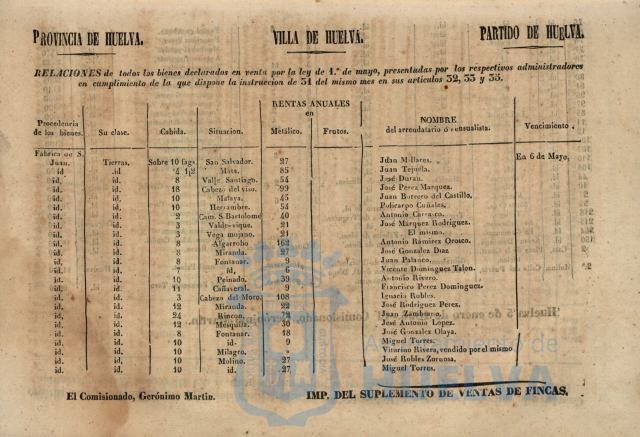 PROVINCIA DE HUELVA. VILLA DE HUELVA. PARTIDO DE HUELVA.
RELACIONES de todos los bienes declarados en venta por la ley de 1.º de mayo, presentadas por los respectivos administradores
en cumplimiento de la que dispone la instruccion de 31 del mismo mes en sus artículos 32, 33 y 35.
RENTAS ANUALES
en
Procedencia de los bienes. Su clase. Cabida. Situacion. Metálico. Frutos. NOMBRE del arrendatario ó censualista. Vencimiento.
Fábrica de S.
Juan. Tierras. Sobre 10 fags. San Salvador. 27 Juan Millares. En 6 de Mayo.
id. id. 4 1/2 Mata. 85 Juan Tejuela.
id. id. 8 Valle Santiago. 54 José Duran.
id. id. 18 Cabezo del viso. 99 José Perez Marquez.
id. id. 10 Malaya. 45 Juan Borrero del Castillo.
id. id. 10 54 Policarpo
id. id. 2 Cam. S. Bartolomé 40 Antonio Carrasco.
id. id. 3 21 José Marquez Rodriguez.
id. id. 3 Vega mojano. 21 El mismo.
id. id. 8 Algarrobo 162 Antonio Ramirez Orosco.
id. id. 8 Miranda. 27 José Gonzalez Diaz
id. id. 8 Fontanar. 9 Juan Palanco.
id. id. 7 id. 6 Vicente Dominguez Talon.
id. id. 10 Peinado. 39 Antonio Rivero.
id. id. 11 Cañaveral. 9 Francisco Perez Dominguez.
id. id. 3 Cabezo del Moro. 108 Ignacio Robles.
id. id. 12 Miranda. 22 José Rodriguez Perez.
id. id. 24 Rincon. 72 Juan Zambrano.
id. id. 12 Mesquita. 30 José Antonio Lopez.
id. id. 8 Fontanar. 18 José Gonzalez Olaya.
id. id. 10 id. 9 Miguel Torres.
id. id. 10 Milagro. Vitorino Rivera, vendido por el mismo
id. id. 10 Molino. 27 José Robles Zornosa.
id. id. 10 id. 27 Miguel Torres.
El Comisionado, Gerónimo Martin. IMP. DEL SUPLEMENTO DE VENTAS DE FINCAS.
Ayuntamiento de
HUELVA